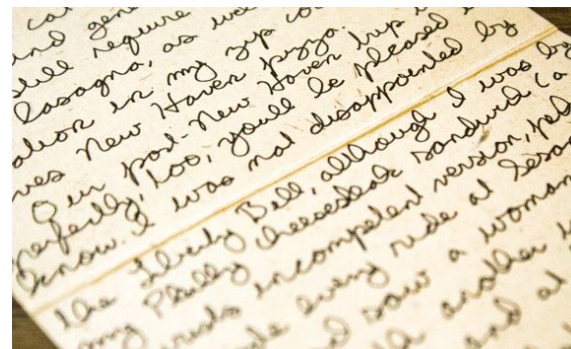 and gene
still require
lasagna, as we
ation in my zip co
ves New Haven pizza.
Our post-New Haven trip
perfectly, too, you'll be pleased
know. I was not disappointed by
the Liberty Bell, although I was by
my Philly cheesesteak sandwich (a
urists incompetent version,
de every ride at Sesam
I saw a woman
another
and at